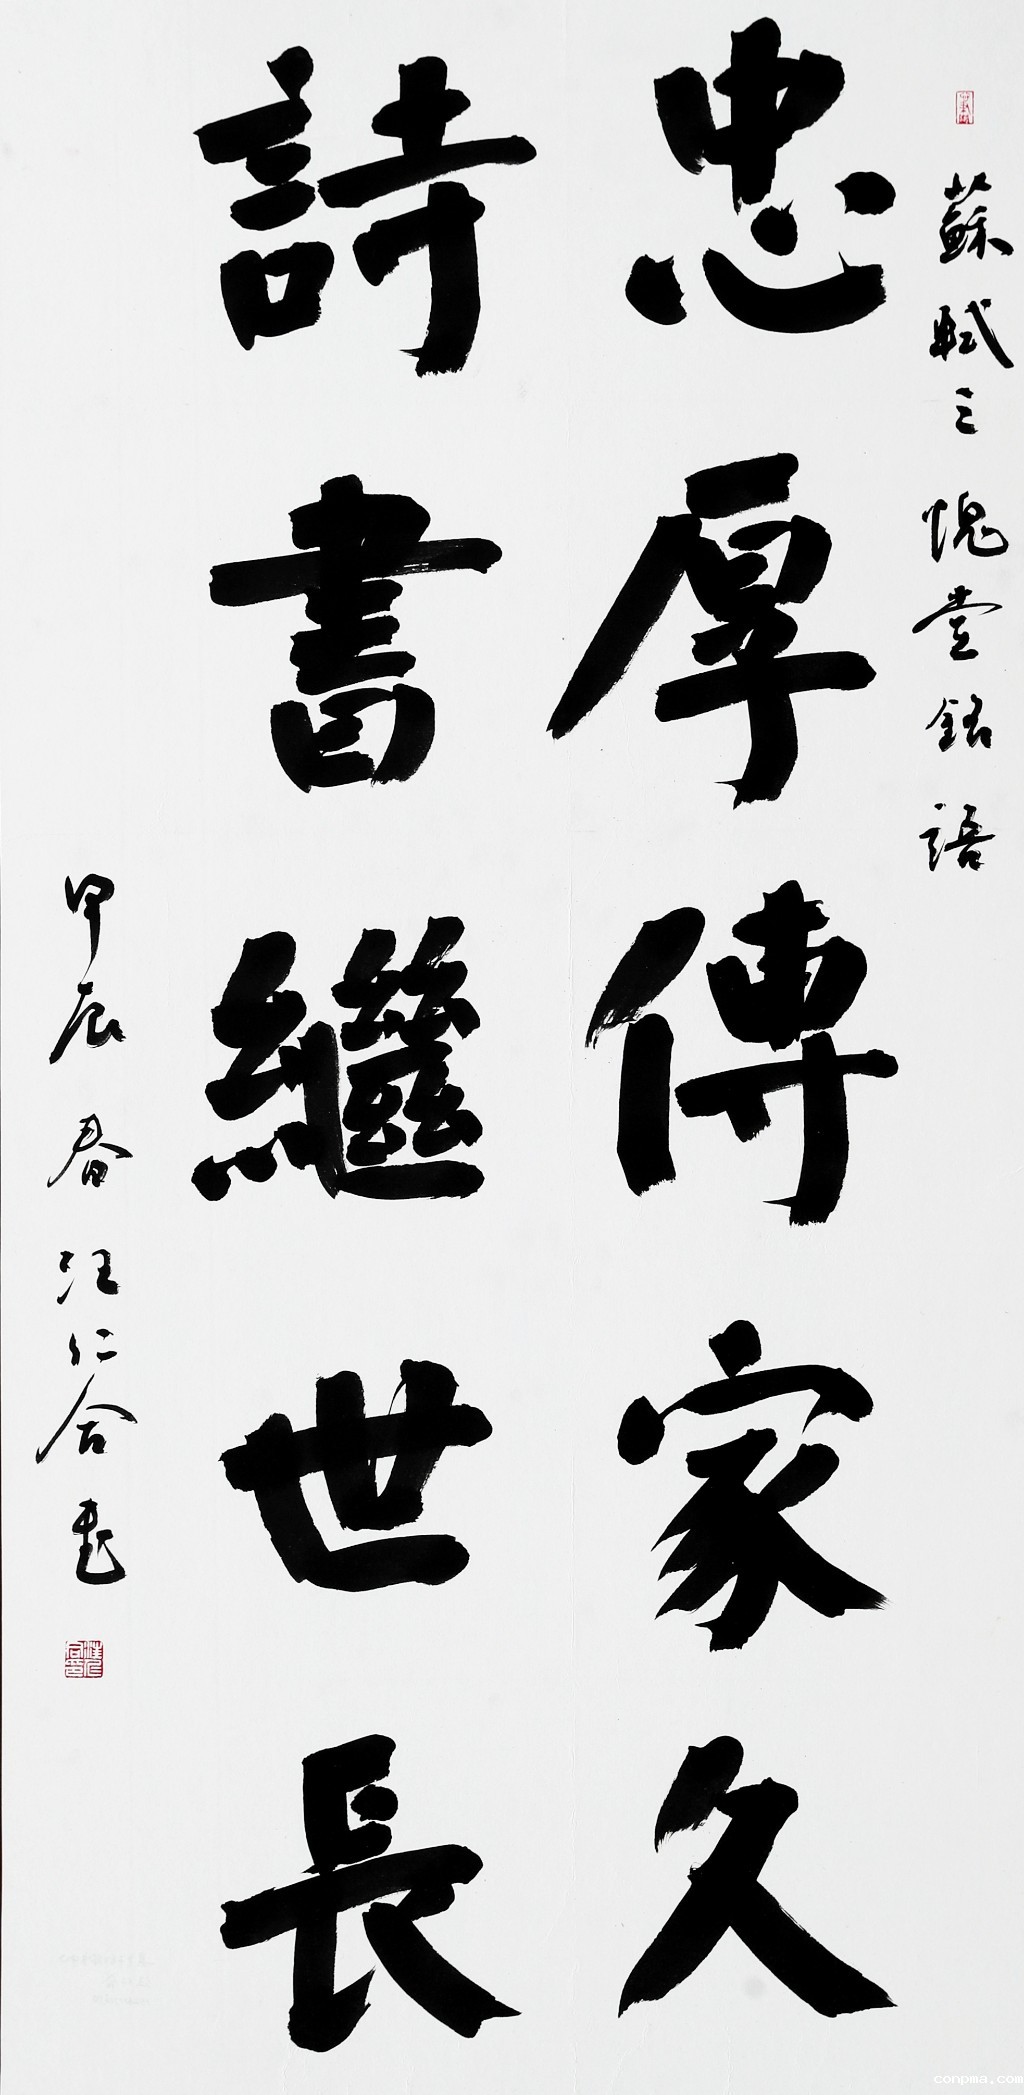 蘇軾三槐堂銘語
忠厚傳家久
詩書繼世長
甲辰春汪仁合書
conpma.com